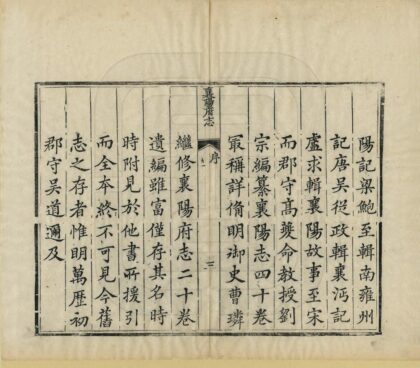 陽記梁鮑至輯南雍州
記唐吳從政輯襄沔記
盧求輯襄陽故事至宋
而郡守高夔命教授劉
宗編纂襄陽志四十卷
冣稱詳偹明御史曹璘
襄陽府志
序
三
繼修襄陽府志二十卷
遺編雖富僅存其名時
時附見於他書所援引
而全本終不可見今舊
志之存者惟明萬歷初
郡守吳道邇及